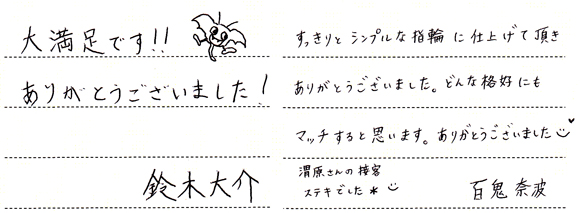 大満足です!!
ありがとうございました!
鈴木大介
すっきりと シンプルな指輪 に 仕上げて頂き
ありがとうございました。どんな格好にも
マッチすると思います。ありがとうございました
渭原さんの接客
ステキでした
百鬼 奈波